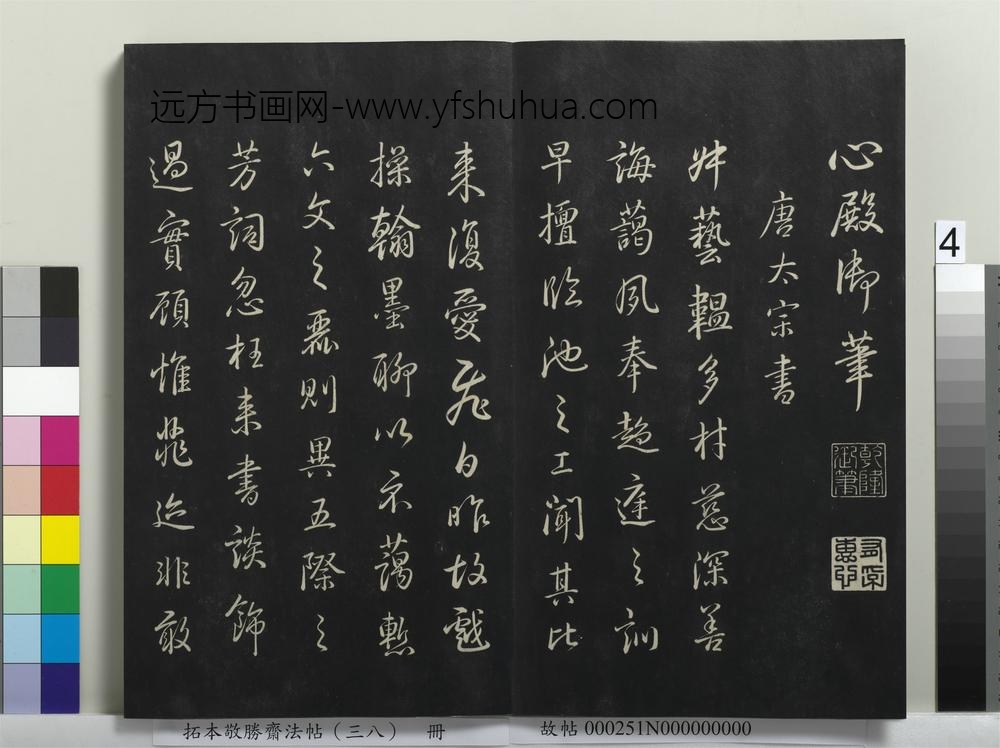 远方书画网-www.yfshuhua.com
心殿御筆
乾隆御筆
唐太宗書
艸藝韞多材慈深善
誨藹夙奉趨庭之訓
早擅臨池之工聞其比
来復愛飛白昨故戲
操翰墨聊以示藹慙
六文之麗則異五際之
芳詞忽枉来書談飾
過實顧惟菲迹非敢
4
拓本敬勝齋法帖（三八） 冊
故帖 000251N000000000